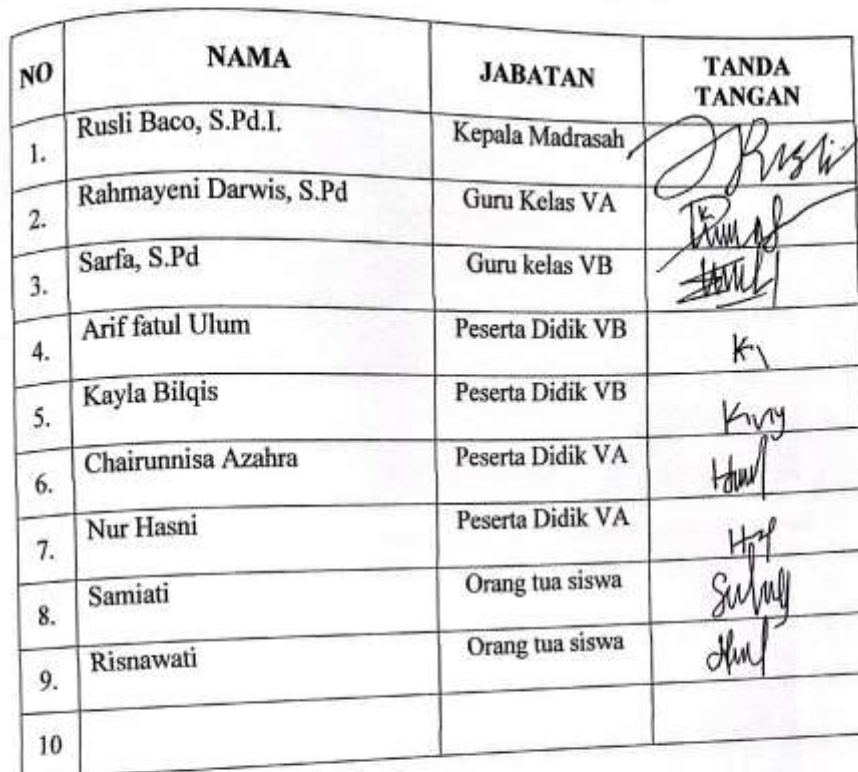 NO NAMA JABATAN TANDA TANGAN
1. Rusli Baco, S.Pd.I. Kepala Madrasah Rusli
2. Rahmayeni Darwis, S.Pd Guru Kelas VA
3. Sarfa, S.Pd Guru kelas VB
4. Arif fatul Ulum Peserta Didik VB
5. Kayla Bilqis Peserta Didik VB
6. Chairunnisa Azahra Peserta Didik VA
7. Nur Hasni Peserta Didik VA
8. Samiati Orang tua siswa
9. Risnawati Orang tua siswa
10